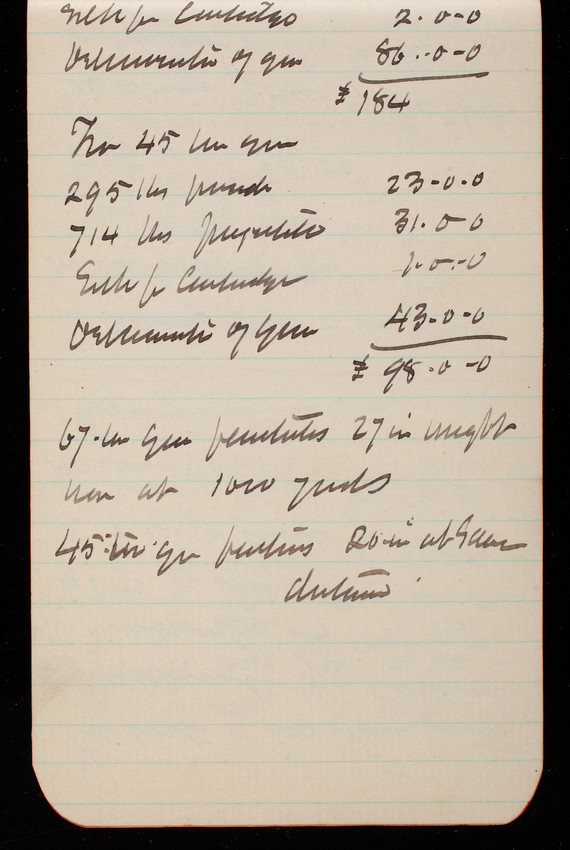 Silk for Cartridges 2.0-0
Deterioration of gun 86.-0-0
£ 184
For 45 ton gun
295 lbs powder 23-0.0
714 lbs projectile 31.0-0
Silk for Cartridge 1-0.-0
Deterioration of Gun 43-0-0
£ 98.0-0
67-ton Gun penetrates 27 in wrought
iron at 1000 yards
45-ton gun 20-in at Same
distance